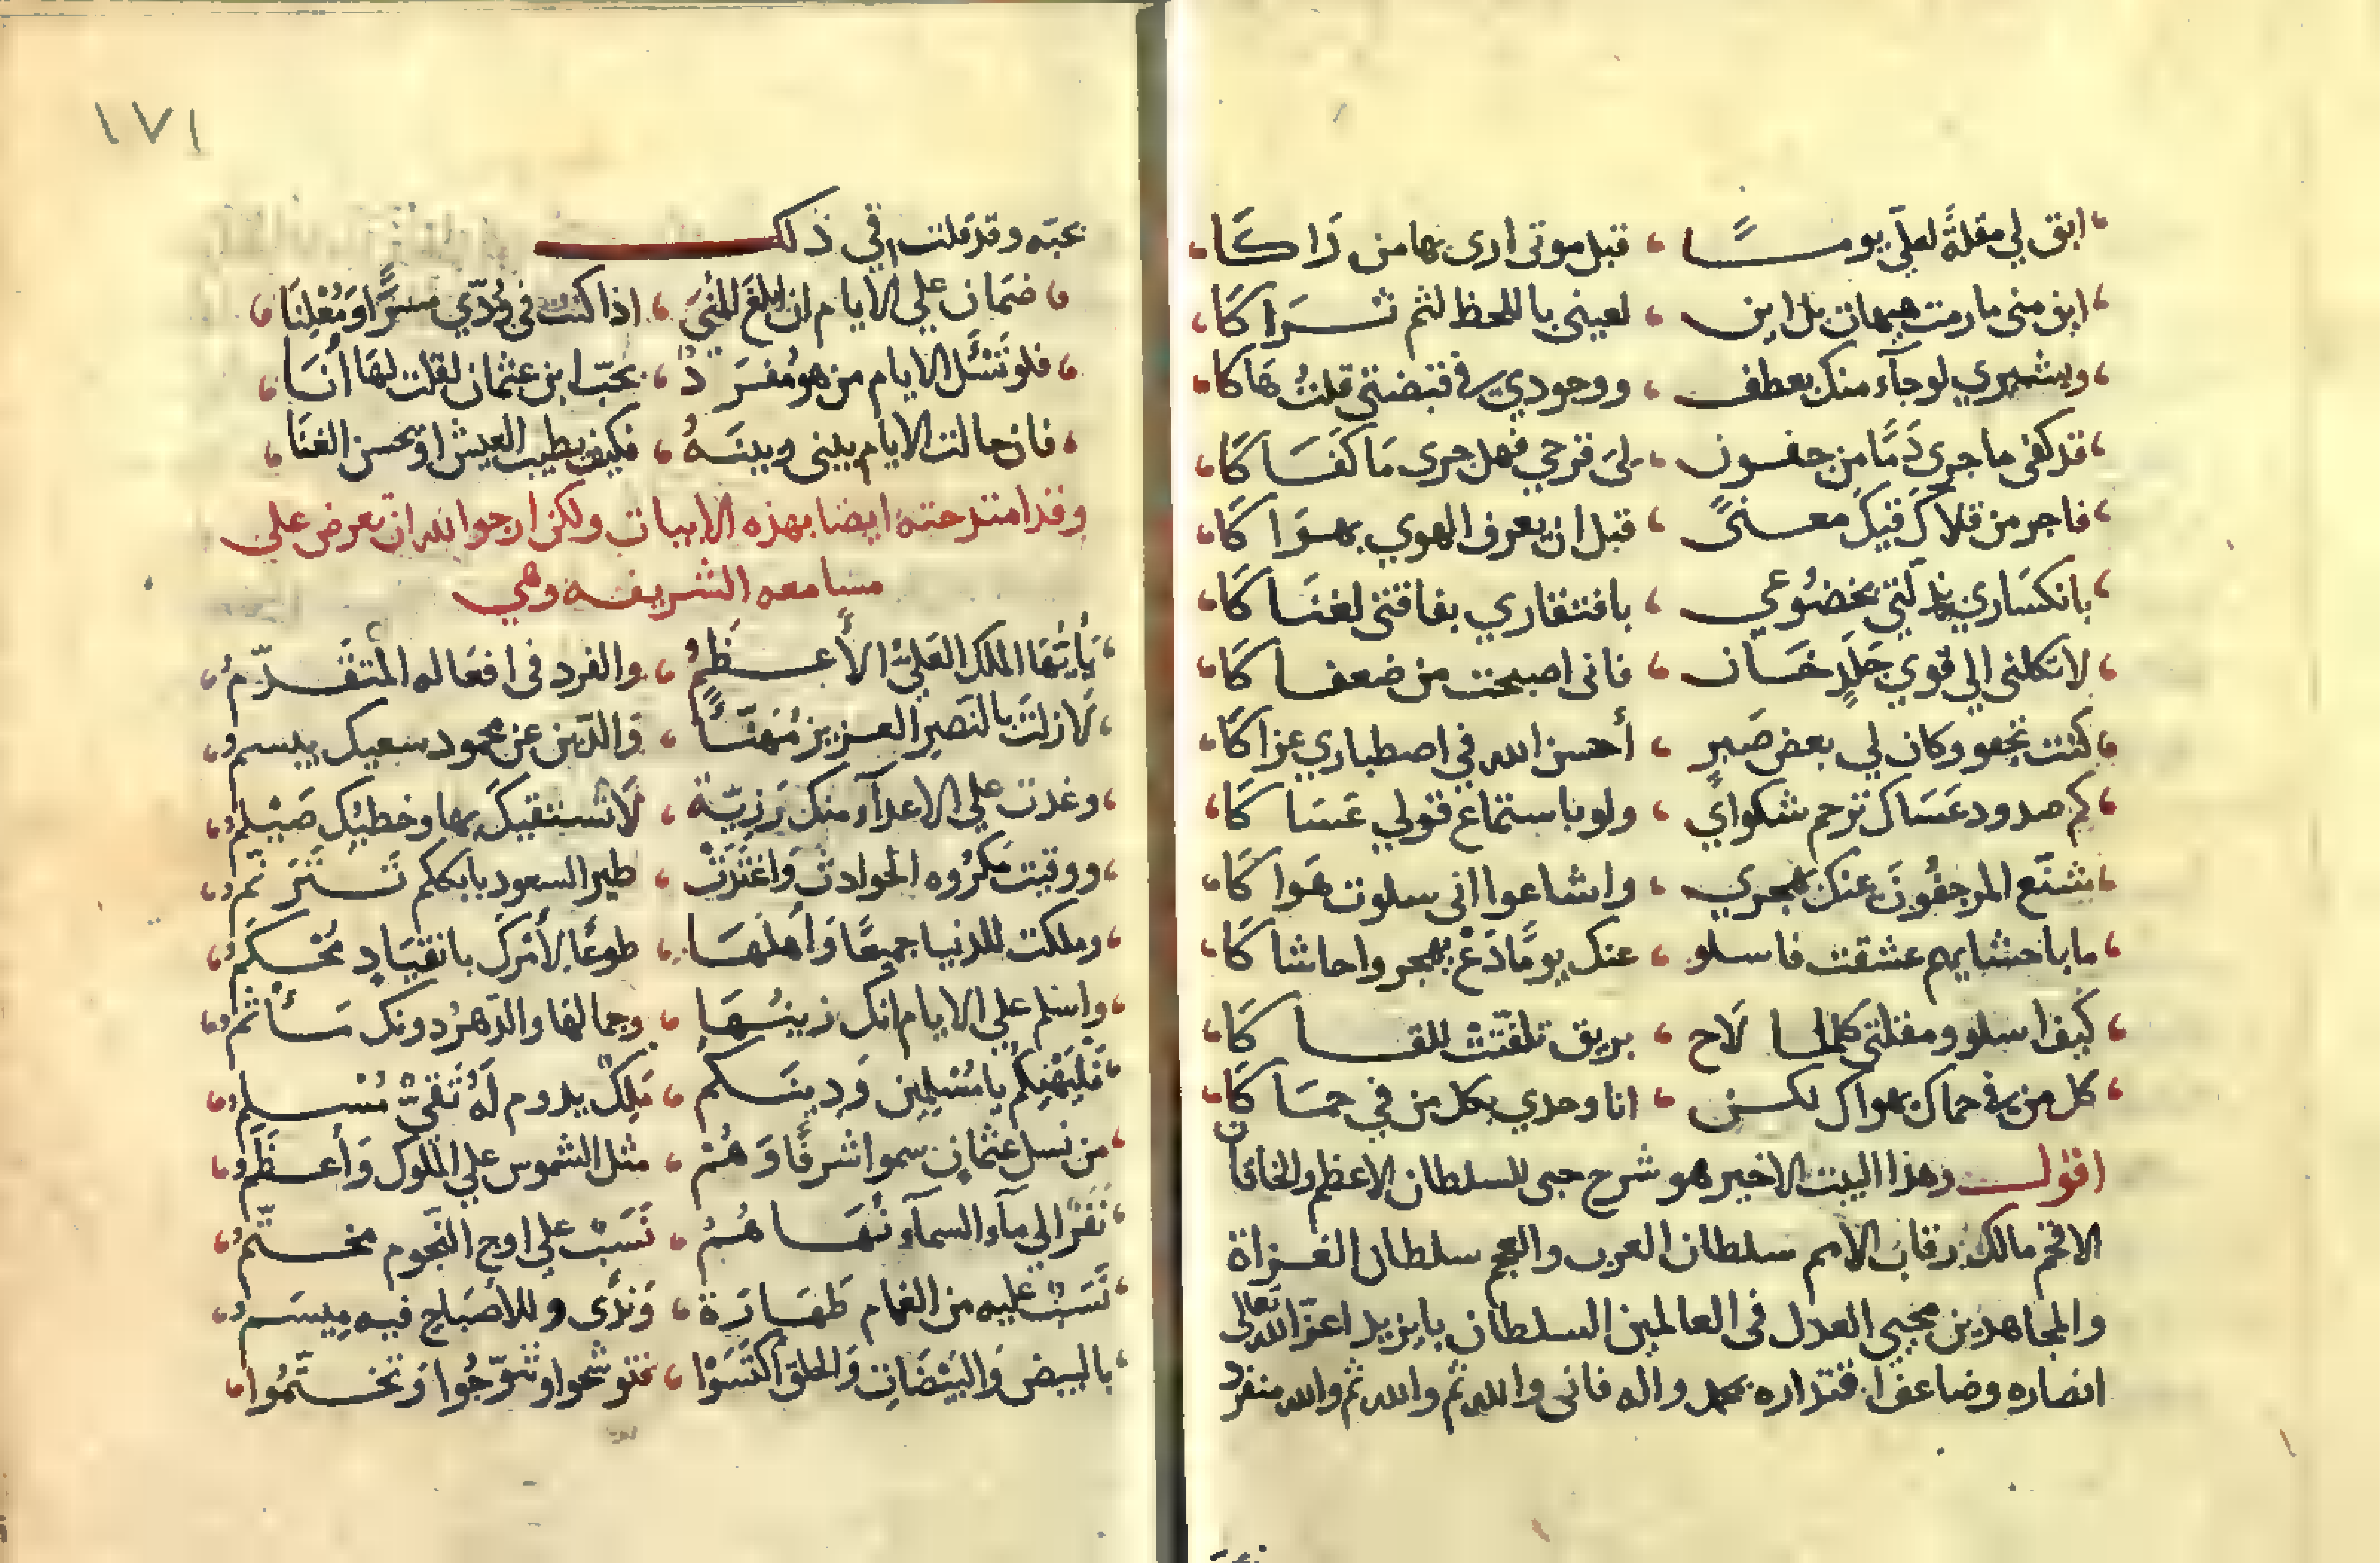 ابق لي مقلةً لعلّي يومـــا ، قبل موتى ارى بها من رَاكَا
اين منى ما رمت هيهات بل اين ، لعينى باللحظ لثم ثـراكَا
وبشيري لو جآء منك بعطف ، ووجودي في قبضتى قلتُ هَاكا
قد كفى ما جرى دَمًا من جفون ، لى قرحي فهل جرى مَا كفَاكَا
فاجر من قلاك فيك معنىً ، قبل ان يعرف الهوي بهواكَا
بانكسَاري بذلّتى بخضُوعي ، بافتقاري بفاقتى لغنَاكَا
لا تكلنى الي قوي جَلَدٍ خَان ، فانى اصبحت من ضعفاكَا
كنت تجفو وكان لي بعض صَبرٍ ، أحسن الله في اصطباري عزاكَا
كم صدود عَسَاك ترحم شكوايَ ، ولو باستماع قولي عَسَاكَا
شنّع المرجفُونَ عنك بهجري ، واشاعوا انى سلوت هَواكَا
ما باحشايهم عشقت فاسلو ، عنك يومًا دَعْ بهجروا حاشاكَا
كيف اسلو ومقلتى كلما لَاح ، بريق تلفّتَتْ للقـاكَا
كل من في حماك يهواك لكن ، انا وحدي بكل من في حمَاكَا
اقولـــ وهذا البيت الاخير هو شرح حبى للسلطان الاعظم والخاقان
الافخم مالك رقاب الامم سلطان العرب والعجم سلطان الغزاة
والمجاهدين محيي العدل فى العالمين السلطان بايزيد اعزّ الله تعالى
انصاره وضاعف اقتداره بمحمد واله فانى والله ثم والله ثم والله منفرد
١٧١
بحبّه وقد قلت في ذلكـــ
ضمَان علي الايام ان ابلغ المُنَى ، اذا كنت فى وُدّي مسرًّا وَمُعْلِنَا
فلو تَسْئَل الايام من هو مُفرَدُ ، بحبّ ابن عثمان لقلت لهَا أنَا
فان حالت الايام بينى وبينَهُ ، فكيف يطيب العيش او يحسن الغنَا
وقد امتدحته ايضا بهذه الابيات ولكن ارجوا لله ان تعرض علي
مسامعه الشريفه وهي
يَأيّهَا الملك العَليّ الأَعظَمُ ، والفرد فى افعاله المُتقَدّمُ
لَا زلتَ بالنَصرِ العزيز مُهَنّأً ، وَالدّين عن محمود سعيك يبسمُ
وغدت علي الاعدآء منك رَزِيّة ، لَا تستقيك بها وخطبك صَيْلمُ
ووقيت مكرُوه الحوادث وَاغتَدَتْ ، طير السعود ببابكم تَترَنّمُ
وملكت للدنيا جميعًا وَأهلَهَا ، طوعًا لأَمرك بانقيَادٍ مُحْكَمُ
واسلم علي الايام انك زينُهَا ، وجمالهَا والدّهرُ دونك مَأتمُ
فَليَهْنِكُم يا مُسْلِمِين وَدينَكُم ، مَلِكٌ يدوم لَهُ تَقىٌّ مُسْلِمُ
من نسل عثمان سموا شرفًا وَهُمْ ، مثل الشموس علي الملوك وَأعظَمُ
نَفَرٌ الي مآء السمآء نُهَاهُمُ ، نَسَبٌ علي اوج النّجوم مخَـتّمُ
نَسَبٌ عليه من الغمام طَهَارَة ، وَندًى وللاصبَاح فيه مِيسَمُ
بالبيض وَالبَيْضَاتِ وَالحلق اكتَسَوْا ، فتوشحوا وتتَوّجُوا وَتختّمُوا